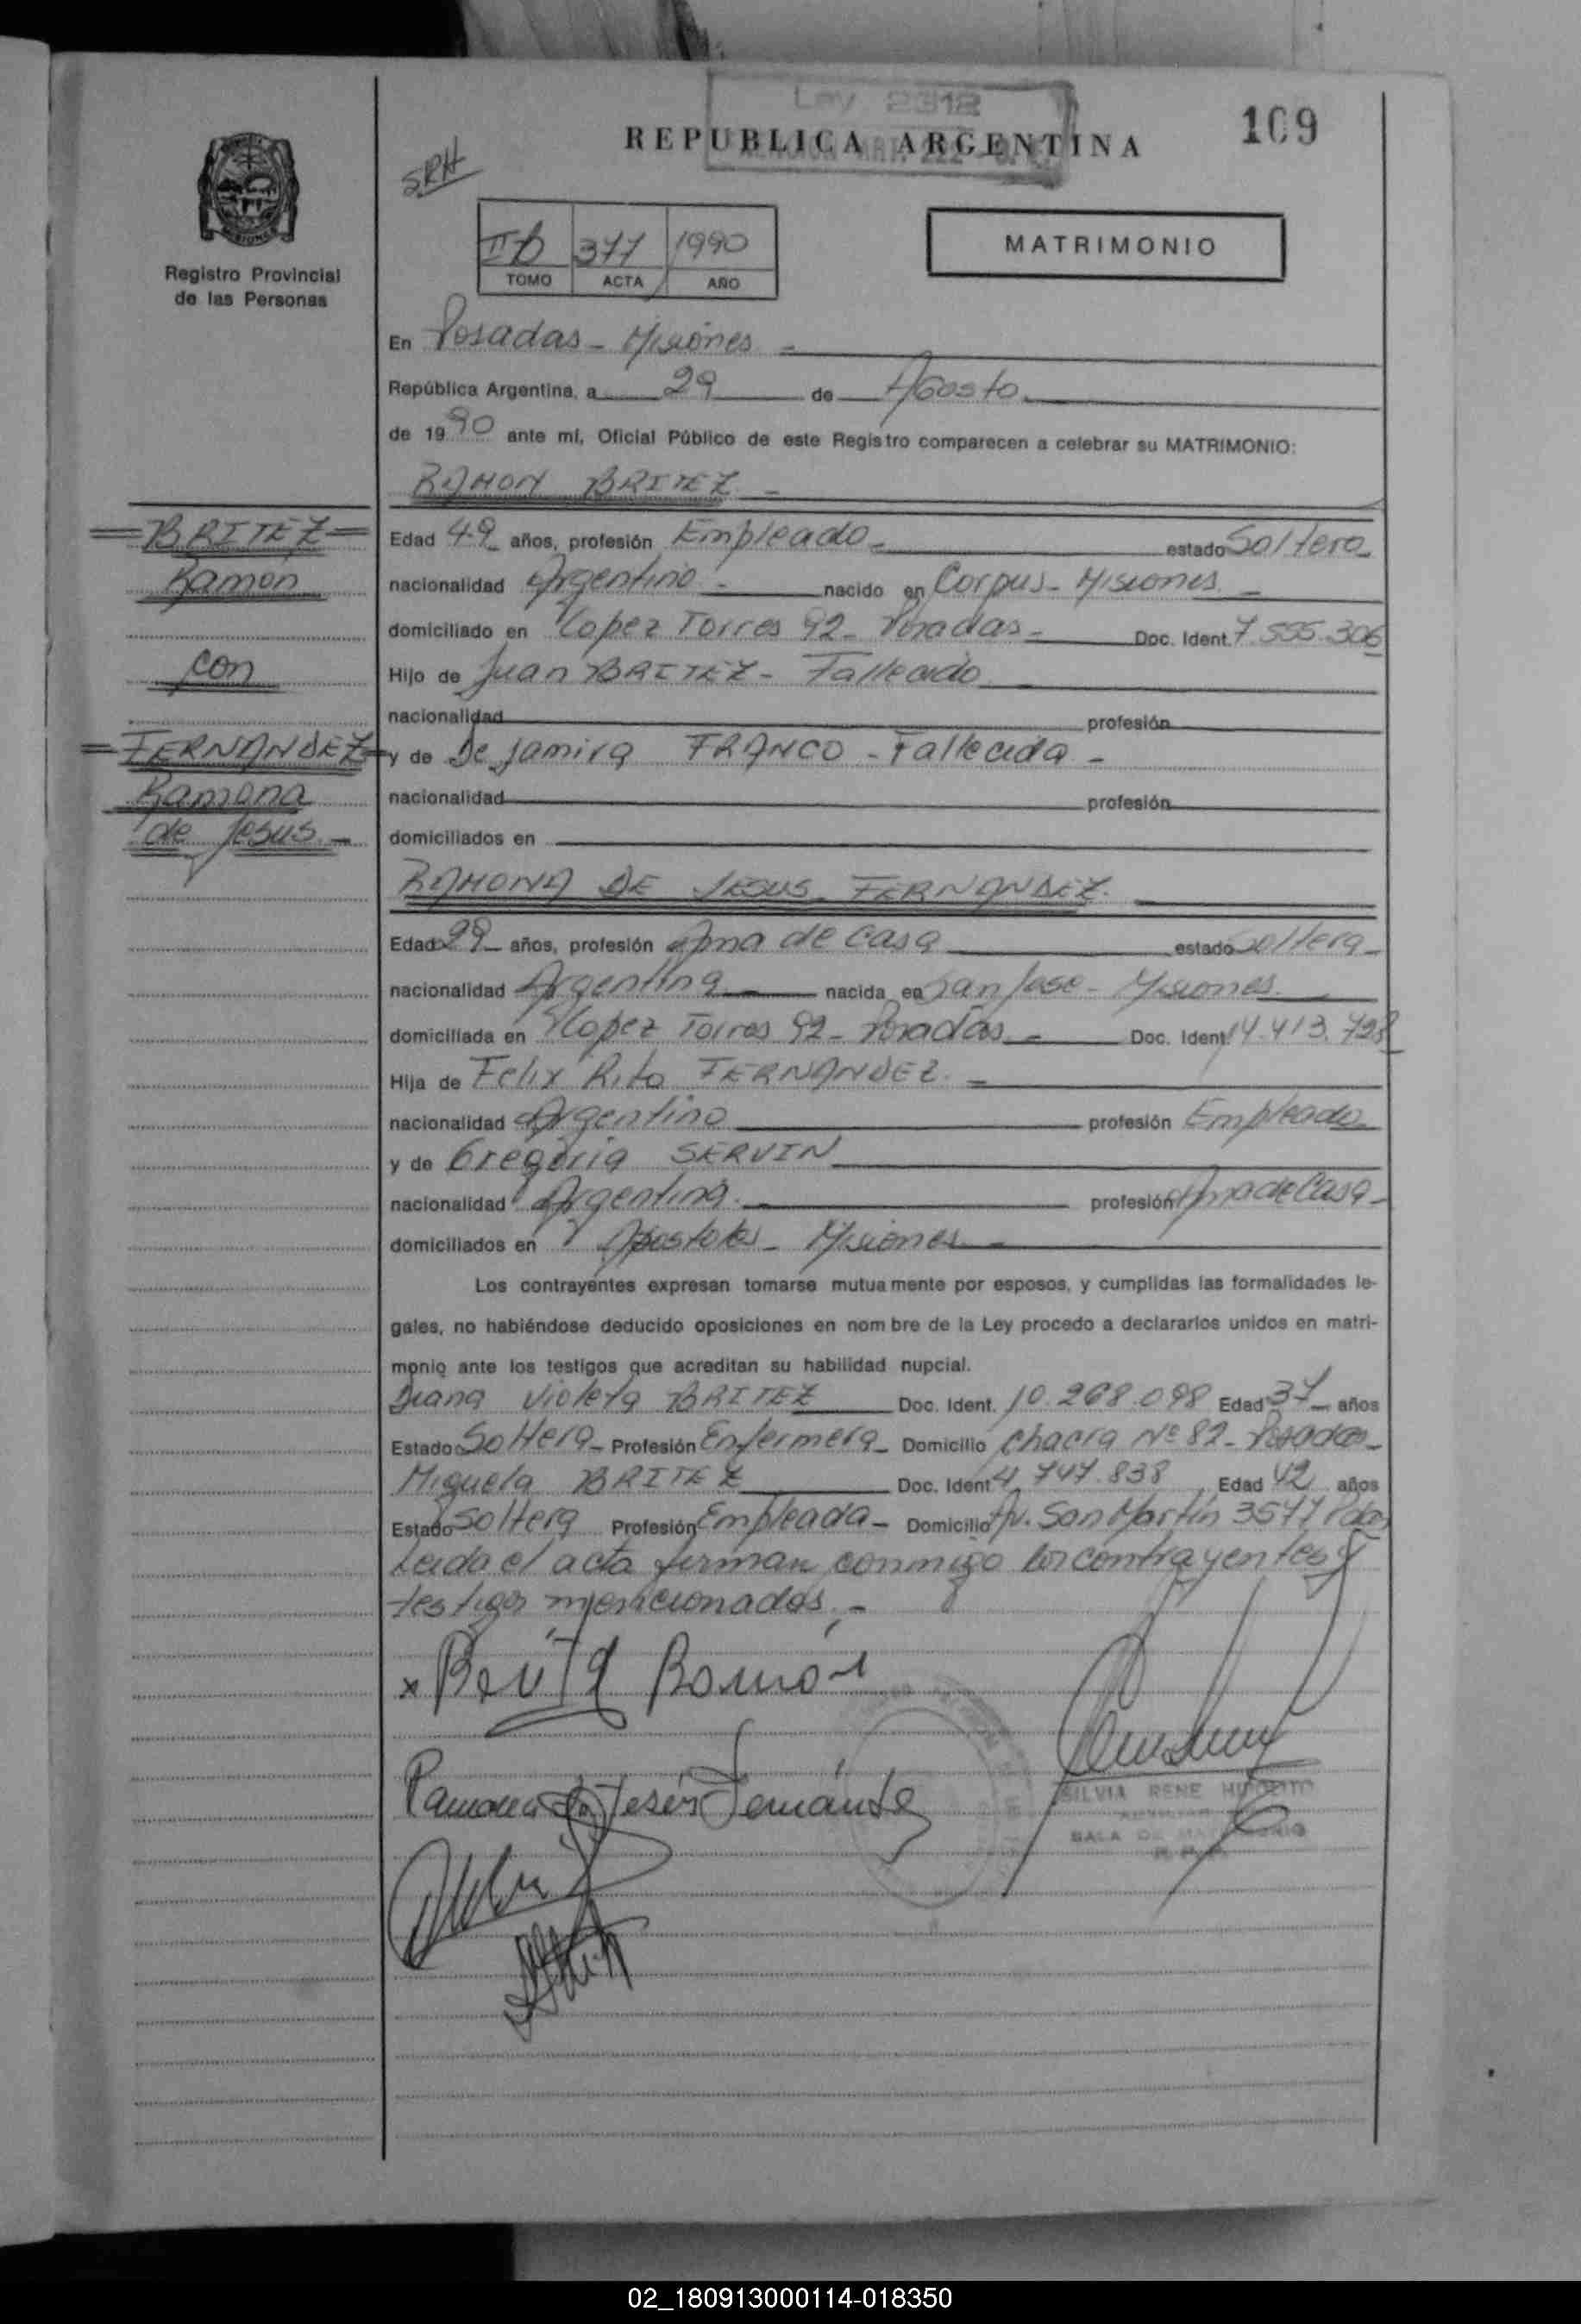 Ley 2312
REPUBLICA ARGENTINA
109
SRH
IIB 377 1990
TOMO ACTA AÑO
MATRIMONIO
MISIONES
Registro Provincial
de las Personas
En Posadas - Misiones -
República Argentina, a 29 de Agosto
de 1990 ante mí, Oficial Público de este Registro comparecen a celebrar su MATRIMONIO:
RAMON BRITEZ -
=BRITEZ=
Ramón
con
=FERNANDEZ=
Ramona
de Jesus.-
Edad 49 años, profesión Empleado - estado Soltero
nacionalidad Argentino - nacido en Corpus - Misiones. -
domiciliado en Lopez Torres 92 - Posadas - Doc. Ident. 7.555.306
Hijo de Juan BRITEZ - Fallecido
nacionalidad profesión
y de Dejamira FRANCO - Fallecida -
nacionalidad profesión
domiciliados en
RAMONA DE JESUS FERNANDEZ.
Edad 29 años, profesión Ama de casa estado Soltera
nacionalidad Argentina nacida en San Jose - Misiones.
domiciliada en Lopez Torres 92 - Posadas - Doc. Ident. 14.413.728
Hija de Felix Rito FERNANDEZ. -
nacionalidad Argentino profesión Empleado
y de Gregoria SERVIN
nacionalidad Argentina. profesión Ama de Casa -
domiciliados en Apostoles - Misiones -
Los contrayentes expresan tomarse mutuamente por esposos, y cumplidas las formalidades le-
gales, no habiéndose deducido oposiciones en nombre de la Ley procedo a declararlos unidos en matri-
monio ante los testigos que acreditan su habilidad nupcial.
Diana Violeta BRITEZ Doc. Ident. 10.268.098 Edad 37 años
Estado Soltera - Profesión Enfermera - Domicilio chacra Nº 82 - Posadas -
Miguela BRITEZ Doc. Ident 4.747.838 Edad 42 años
Estado Soltera Profesión Empleada - Domicilio Av. San Martín 3577 Pdas
Leida el acta firman conmigo los contrayentes y
testigos mencionados. -
x Ramón
Ramona de Jesús Fernández
SILVIA RENE HIPOLITO
SALA DE MATRIMONIO
02_180913000114-018350